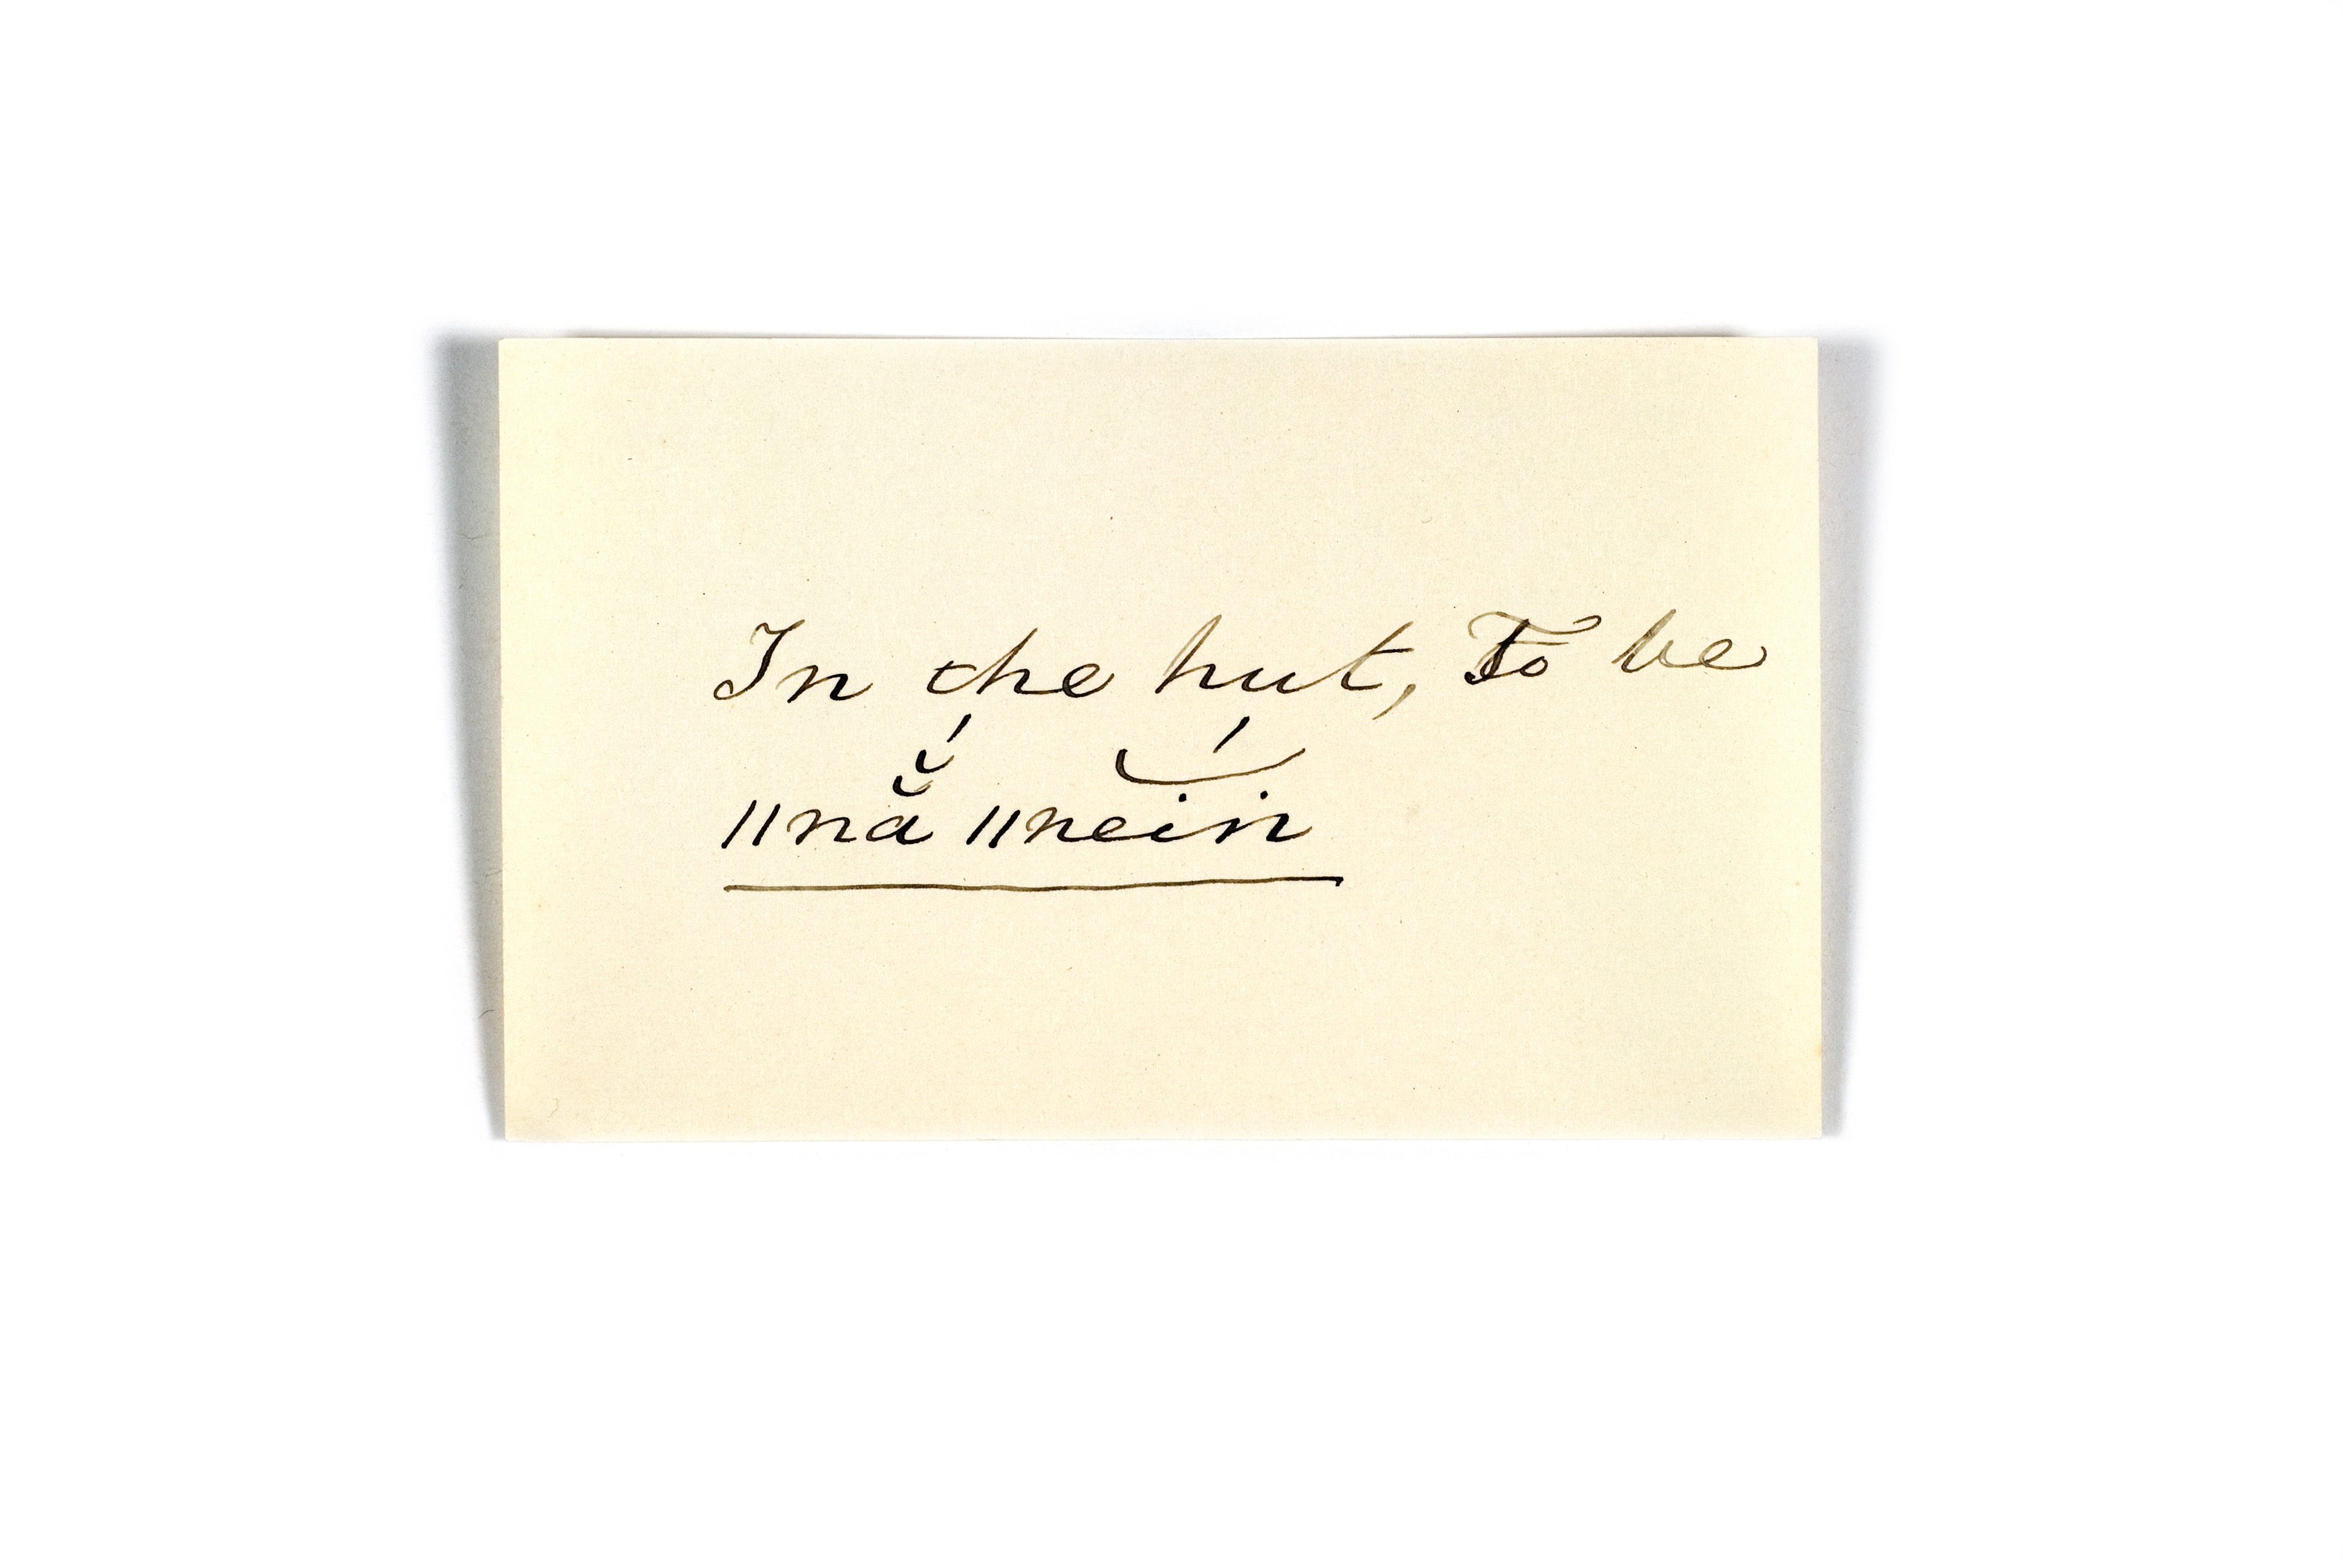 In the hut, To be
ǁnă ǁneiṅ